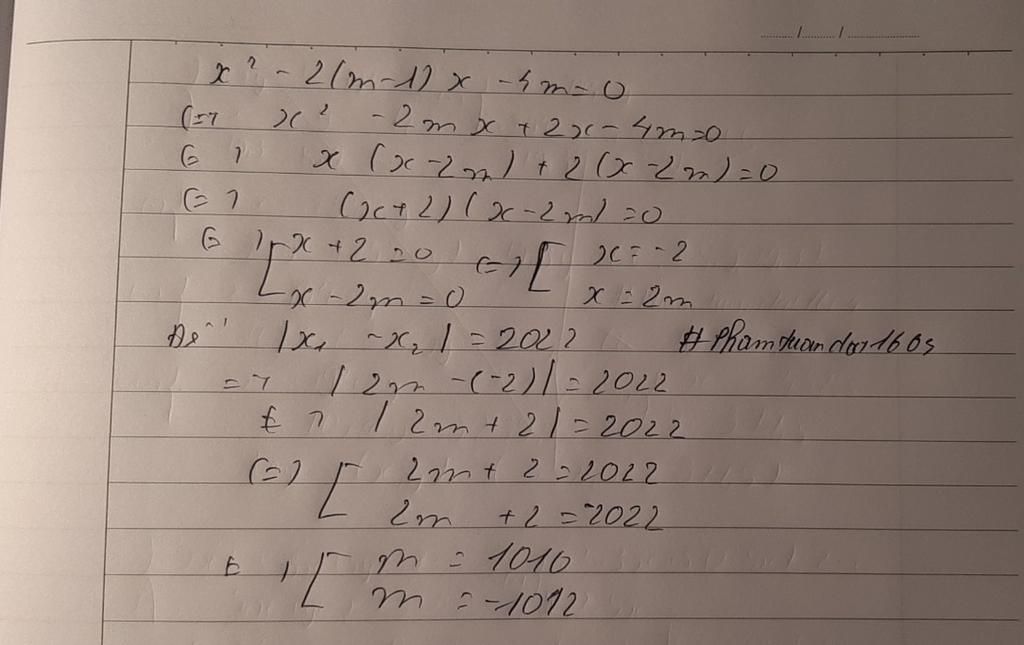 ...... / ...... / ............
x² - 2(m-1)x - 4m = 0
(=) x² - 2mx + 2x - 4m = 0
(=) x (x - 2m) + 2 (x - 2m) = 0
(=) (x+2)(x - 2m) = 0
(=) [ x + 2 = 0 (=) [ x = -2
x - 2m = 0 x = 2m
|x₁ - x₂| = 2022
=> | 2m - (-2)| = 2022
(=) | 2m + 2| = 2022
(=) [ 2m + 2 = 2022
2m + 2 = -2022
(=) [ m = 1010
m = -1012